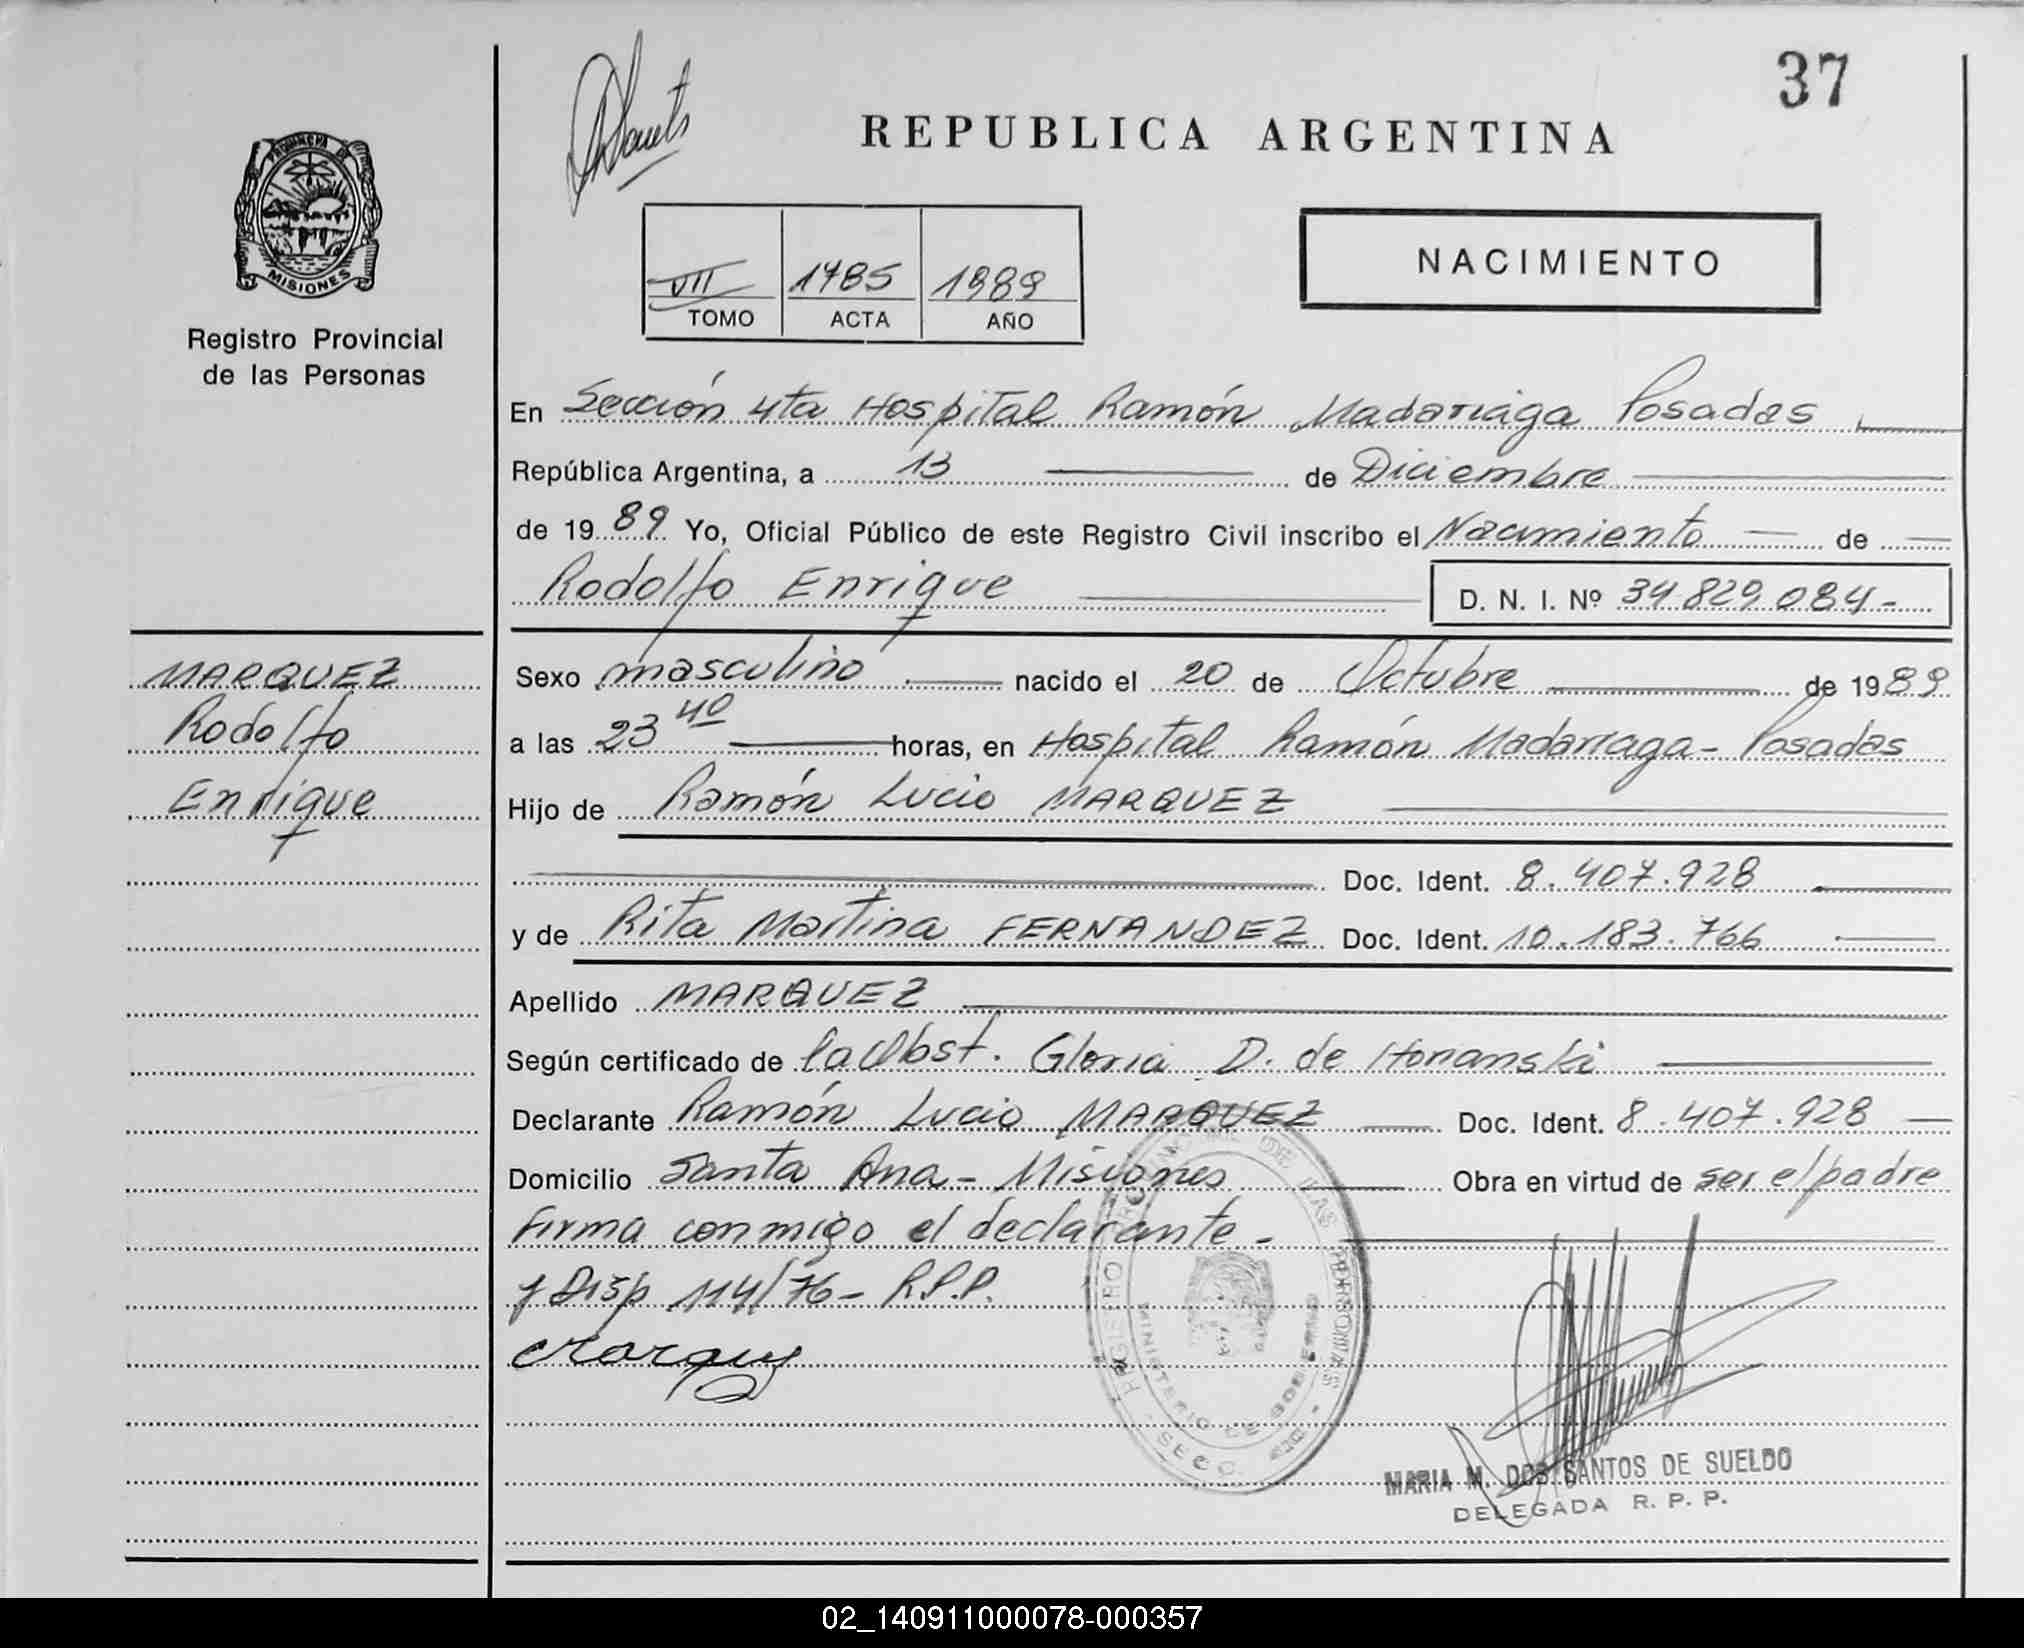 37
REPUBLICA ARGENTINA
PROVINCIA DE
MISIONES
Registro Provincial
de las Personas
VII 1785 1989
TOMO ACTA AÑO
NACIMIENTO
En Sección 4ta Hospital Ramón Madariaga Posadas
República Argentina, a 13 de Diciembre
de 1989 Yo, Oficial Público de este Registro Civil inscribo el Nacimiento de
Rodolfo Enrique D. N. I. Nº 34.829.084-
MARQUEZ
Rodolfo
Enrique
Sexo masculino nacido el 20 de Octubre de 1989
a las 23 40 horas, en Hospital Ramón Madariaga- Posadas
Hijo de Ramón Lucio MARQUEZ
Doc. Ident. 8.407.928
y de Rita Martina FERNANDEZ Doc. Ident. 10.183.766
Apellido MARQUEZ
Según certificado de la Obst. Gloria D. de Horianski
Declarante Ramón Lucio MARQUEZ Doc. Ident. 8.407.928
Domicilio Santa Ana- Misiones Obra en virtud de ser el padre
Firma conmigo el declarante-
y Disp 114/76- R.P.P.
Marquez
REGISTRO PROVINCIAL DE LAS PERSONAS
MINISTERIO DE GOBIERNO
MARIA M. DOS SANTOS DE SUELDO
DELEGADA R. P. P.
02_140911000078-000357